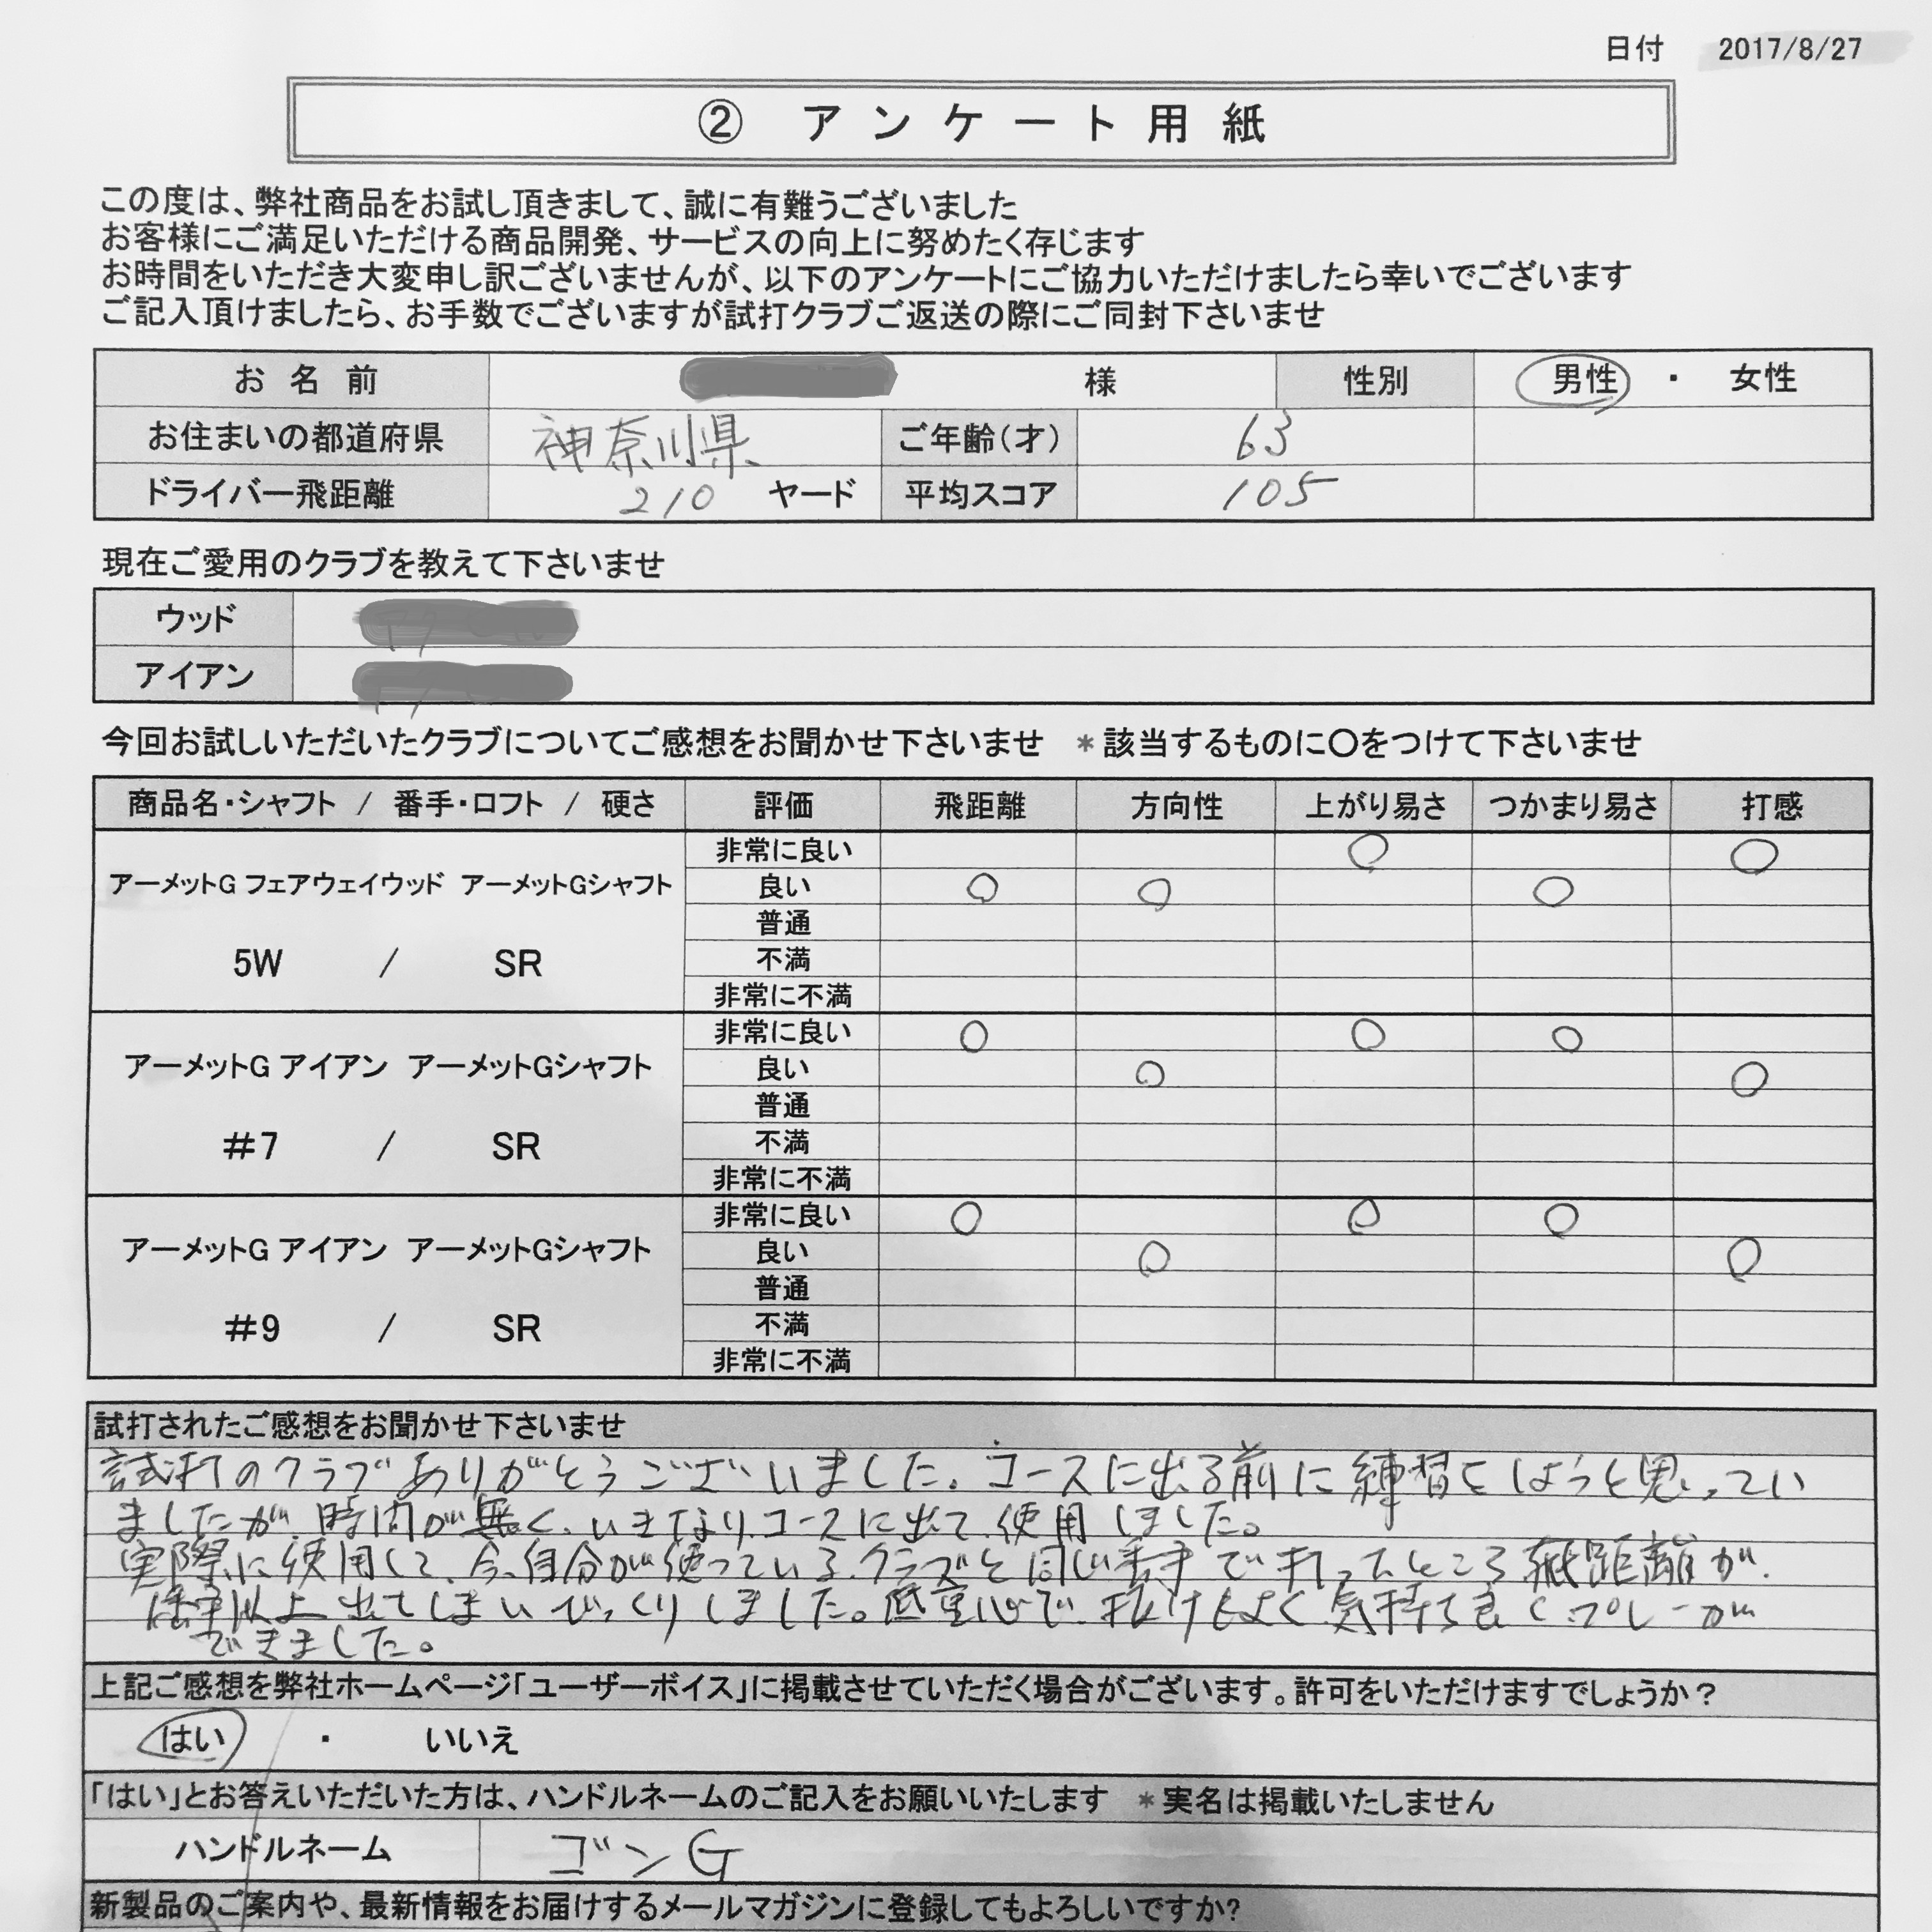 日付 2017/8/27
② アンケート用紙
この度は、弊社商品をお試し頂きまして、誠に有難うございました
お客様にご満足いただける商品開発、サービスの向上に努めたく存じます
お時間をいただき大変申し訳ございませんが、以下のアンケートにご協力いただけましたら幸いでございます
ご記入頂けましたら、お手数でございますが試打クラブご返送の際にご同封下さいませ
お名前 様 性別 男性 ・ 女性
お住まいの都道府県 神奈川県 ご年齢(才) 63
ドライバー飛距離 210 ヤード 平均スコア 105
現在ご愛用のクラブを教えて下さいませ
ウッド
アイアン
今回お試しいただいたクラブについてご感想をお聞かせ下さいませ *該当するものに〇をつけて下さいませ
商品名・シャフト / 番手・ロフト / 硬さ 評価 飛距離 方向性 上がり易さ つかまり易さ 打感
非常に良い 〇 〇
アーメットG フェアウェイウッド アーメットGシャフト 良い 〇 〇 〇
普通
5W / SR 不満
非常に不満
非常に良い 〇 〇 〇
アーメットG アイアン アーメットGシャフト 良い 〇 〇
普通
#7 / SR 不満
非常に不満
非常に良い 〇 〇 〇
アーメットG アイアン アーメットGシャフト 良い 〇 〇
普通
#9 / SR 不満
非常に不満
試打されたご感想をお聞かせ下さいませ
試打のクラブありがとうございました。コースに出る前に練習をしようと思ってい
ましたが、時間が無く、いきなりコースに出て使用しました。
実際に使用して、今、自分が使っているクラブと同じ番手で打ったところ飛距離が
以上出てしまいびっくりしました。低重心で、抜けもよく気持ち良くプレーが
できました。
上記ご感想を弊社ホームページ「ユーザーボイス」に掲載させていただく場合がございます。許可をいただけますでしょうか?
はい ・ いいえ
「はい」とお答えいただいた方は、ハンドルネームのご記入をお願いいたします *実名は掲載いたしません
ハンドルネーム ゴンG
新製品のご案内や、最新情報をお届けするメールマガジンに登録してもよろしいですか?